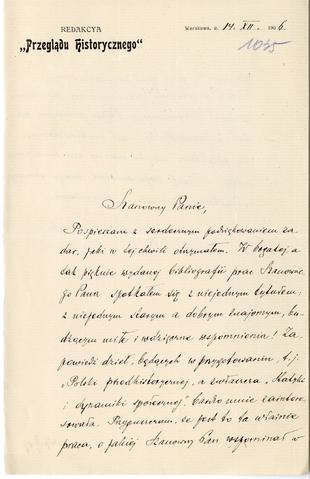 REDAKCYA
„Przeglądu Historycznego“
Warszawa, d. 14. XII. 1906.
1035
Szanowny Panie,
Pospieszam z serdecznym podziękowaniem za
dar, jaki w tej chwili otrzymałem. W bogatej, a
tak pięknie wydanej bibliografii prac Szanowne-
go Pana spotkałem się z niejednym tytułem,
z niejednym starym a dobrym znajomym, bu-
dzącym miłe i wdzięczne wspomnienia! Za-
powiedź dzieł, będących w przygotowaniu, t. j.
„Polski przedhistorycznej, a zwłaszcza „Statyki
i dynamiki społecznej", bardzo mnie zaintere-
sowała. Przypuszczam, że jest to ta właśnie
praca, o jakiej Szanowny Pan wspominał w